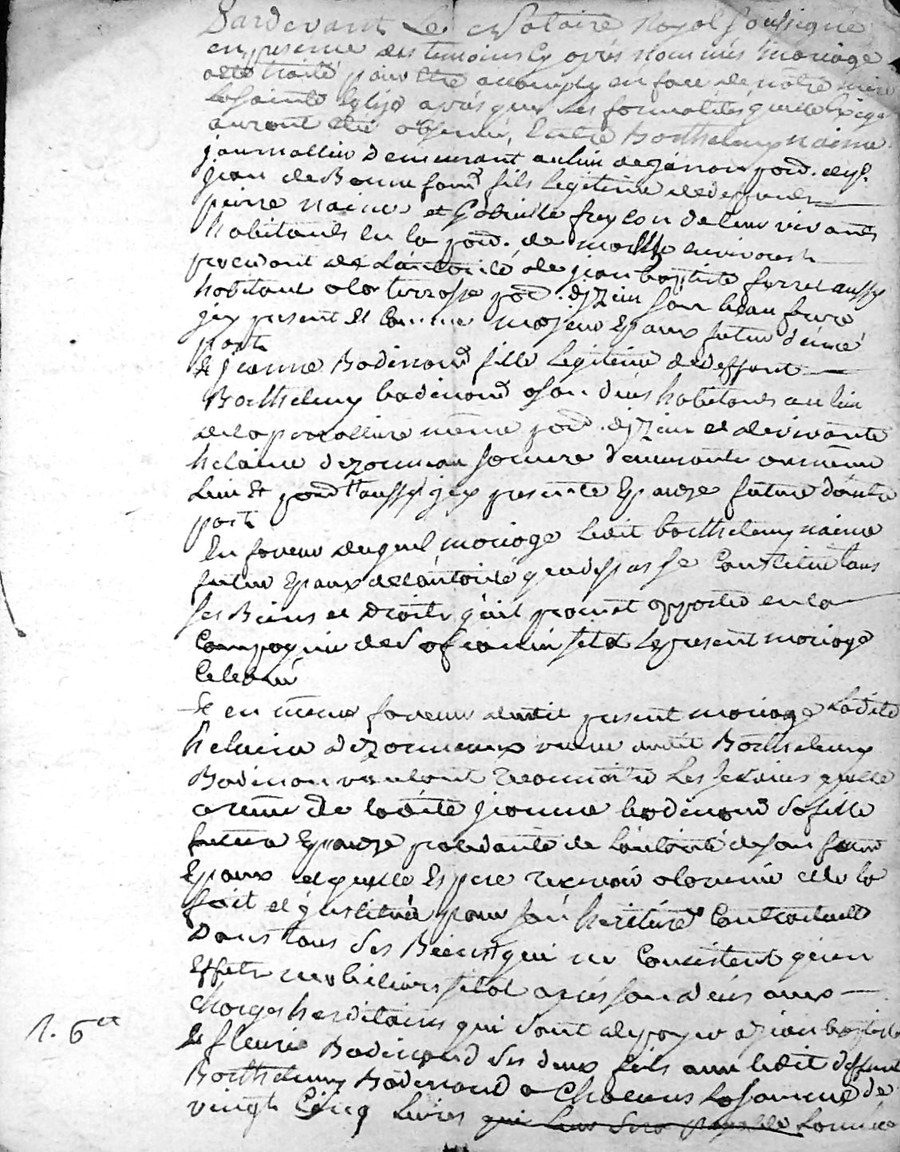 Pardevant Le Notaire Royal Soussigné
en presence des temoins cy après Nommés mariage
a été traité pour être accomply en face de notre mere
La sainte Eglise apres que Les formalités quelle Exige
auront eté observé, Entre Barthelemy naime
journallier demeurant au lieu de
jean de Bonnefond fils Legitime de deffunts
pierre naime et freyson de leur vivants
habitants en la de en vivarest
procedant de L'autorité de jean baptiste ferret aussy
habitant a la terrasse son beau frere
jcy present et comme majeur Epoux futur d'une
part
Et jeanne Badinand fille Legitime de deffunt
Barthelemy badinand a son deces habitants au lieu
de la même et de vivante
helaine dezormeau sa mere demeurante au même
Lieu et aussy jcy presente Epouze future d'autre
part
En faveur duquel mariage Ledit barthelemy naime
futur Epoux de L'autorité quedessus se Constitue tous
ses Biens et Droits qu'il promet apporter en la
Compagnie de Sa future sitot Le present mariage
Celebré
Et en même faveur dudit present mariage Ladite
helaine dezormeaux veuve dudit Barthelemy
Badinand voulant reconnaitre Les services quelle
a reçu de ladite jeanne badinand Sa fille
future Epouze procedante de L'autorité de son futur
Epoux et quelle Espere recevoir a l'avenir elle la
fait et jnstitue pour son heritiere Contractuelle
Dans tous Ses Biens qui ne Consistent qu'en
Effets mobiliers sitot apres son deces aux
charges hereditaires qui sont de payer a jean baptiste
et fleurie Badinand Ses deux fils dudit deffunt
Barthelemy Badinand a Chacuns La somme de
vingt Cinq Livres qui Leur Sera payable
1. 6